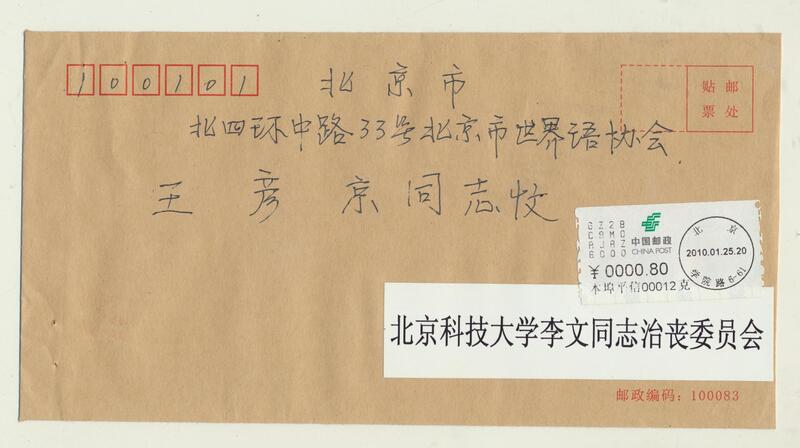 100101
北京市
贴邮
票处
北四环中路33号北京市世界语协会
王彦京同志收
GZ2B
C9MC
AJAZ
6000
中国邮政
CHINA POST
¥0000.80
本埠平信00012克
北京
2010.01.25.20
学院路
北京科技大学李文同志治丧委员会
邮政编码：100083